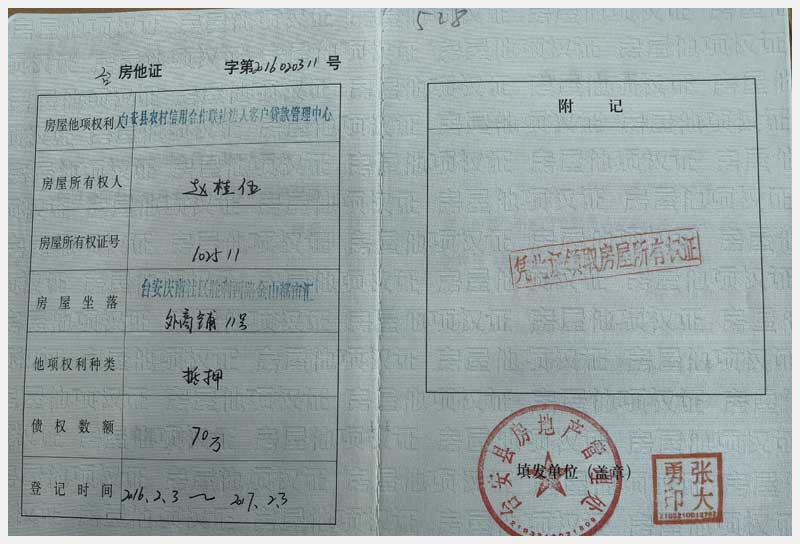 528
台 房他证 字第2016020311 号
房屋他项权利人 台安县农村信用合作联社法人客户贷款管理中心
房屋所有权人 赵桂伍
房屋所有权证号 102511
房屋坐落 台安
外商铺 11号
他项权利种类 抵押
债权数额 70万
登记时间 2016.2.3 ~ 2017.2.3
附 记
凭此证领取房屋所有权证
台安县房地产管理处
填发单位（盖章）
张大勇印